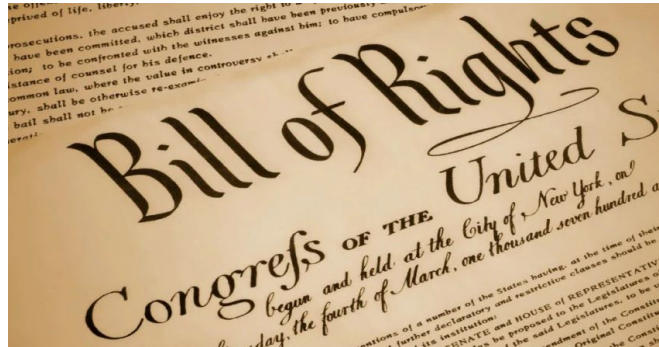 prived of life, liberty,
prosecutions, the accused shall enjoy the right to
have been committed, which district shall have been previously
to be confronted with the witnesses against him; to have compulsor
istance of counsel for his defence.
ommon law, where the value in controversy shall
ury, shall be otherwise re-exami
bail shall not be
Bill of Rights
Congreſs OF THE United S
begun and held at the City of New York, on
day, the fourth of March, one thousand seven hundred a
entions of a number of the States having, at the time of their
further declaratory and restrictive clauses should be
its institution:
SENATE and HOUSE of REPRESENTATIV
be proposed to the Legislatures o
said Legislatures, to be
endment of the Constitu
Original Constitu